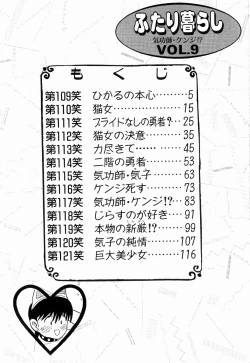 ふたり暮らし
気功師・ケンジ!?
VOL.9
もくじ
第109笑 ひかるの本心………5
第110笑 猫女………15
第111笑 プライドなしの勇者?…25
第112笑 猫女の決意………35
第113笑 力尽きて………45
第114笑 二階の勇者………53
第115笑 気功師・気子………63
第116笑 ケンジ死す………73
第117笑 気功師・ケンジ!?…83
第118笑 じらすのが好き…91
第119笑 本物の新厳!?…99
第120笑 気子の純情………107
第121笑 巨大美少女………116